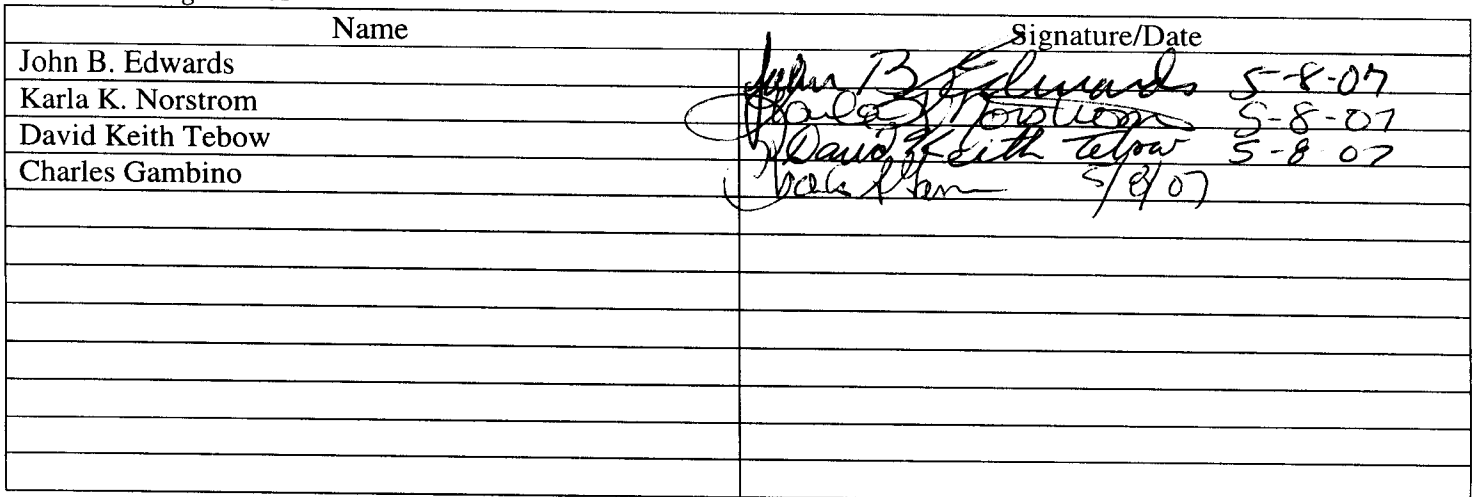 Name Signature/Date
John B. Edwards John B Edwards 5-8-07
Karla K. Norstrom Karla K Norstrom 5-8-07
David Keith Tebow David Keith Tebow 5-8-07
Charles Gambino 5/8/07